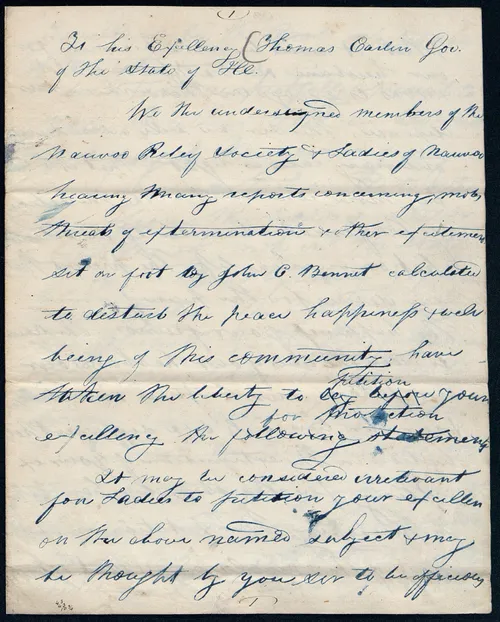 (1)
To his Excellency Thomas Carlin Gov.
of the State of Ill.
We the undersigned members of the
Nauvoo Relief Society & Ladies of Nauvoo
hearing many reports concerning mobs,
threats of extermination & other excitement
set on foot by John C. Bennet calculated
to disturb the peace happiness & well
being of this community, have
taken the liberty to petition your
for protection
excellency the following statements
It may be considered irrelevant
for Ladies to petition your excellen
on the above named subject & may
be thought by you sir to be officious